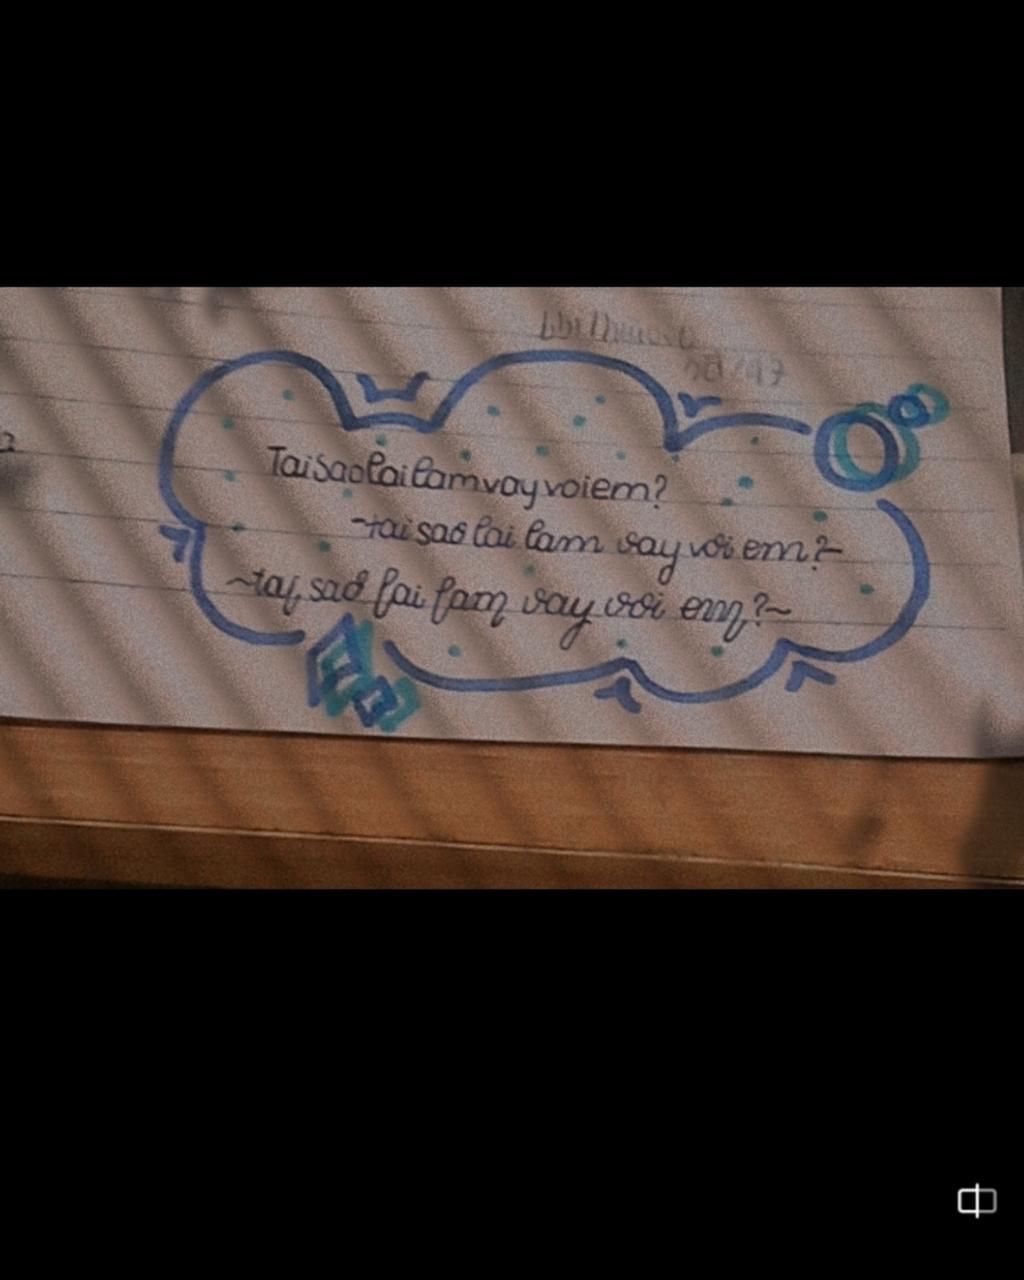 Taisaolailamvayvoiem?
~tai sao lai lam vay voi em?~
~tai sao lai lam vay voi em?~